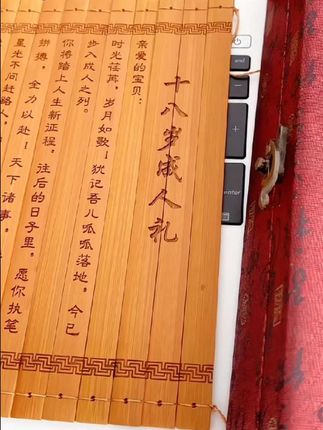 十八岁成人礼
亲爱的宝贝：
时光荏苒，岁月如歌！犹记吾儿呱呱落地，今已
步入成人之列。
你将踏上人生新征程，往后的日子里，愿你执笔
拼搏，全力以赴！天下诸事，
星光不问赶路人，
end
enter